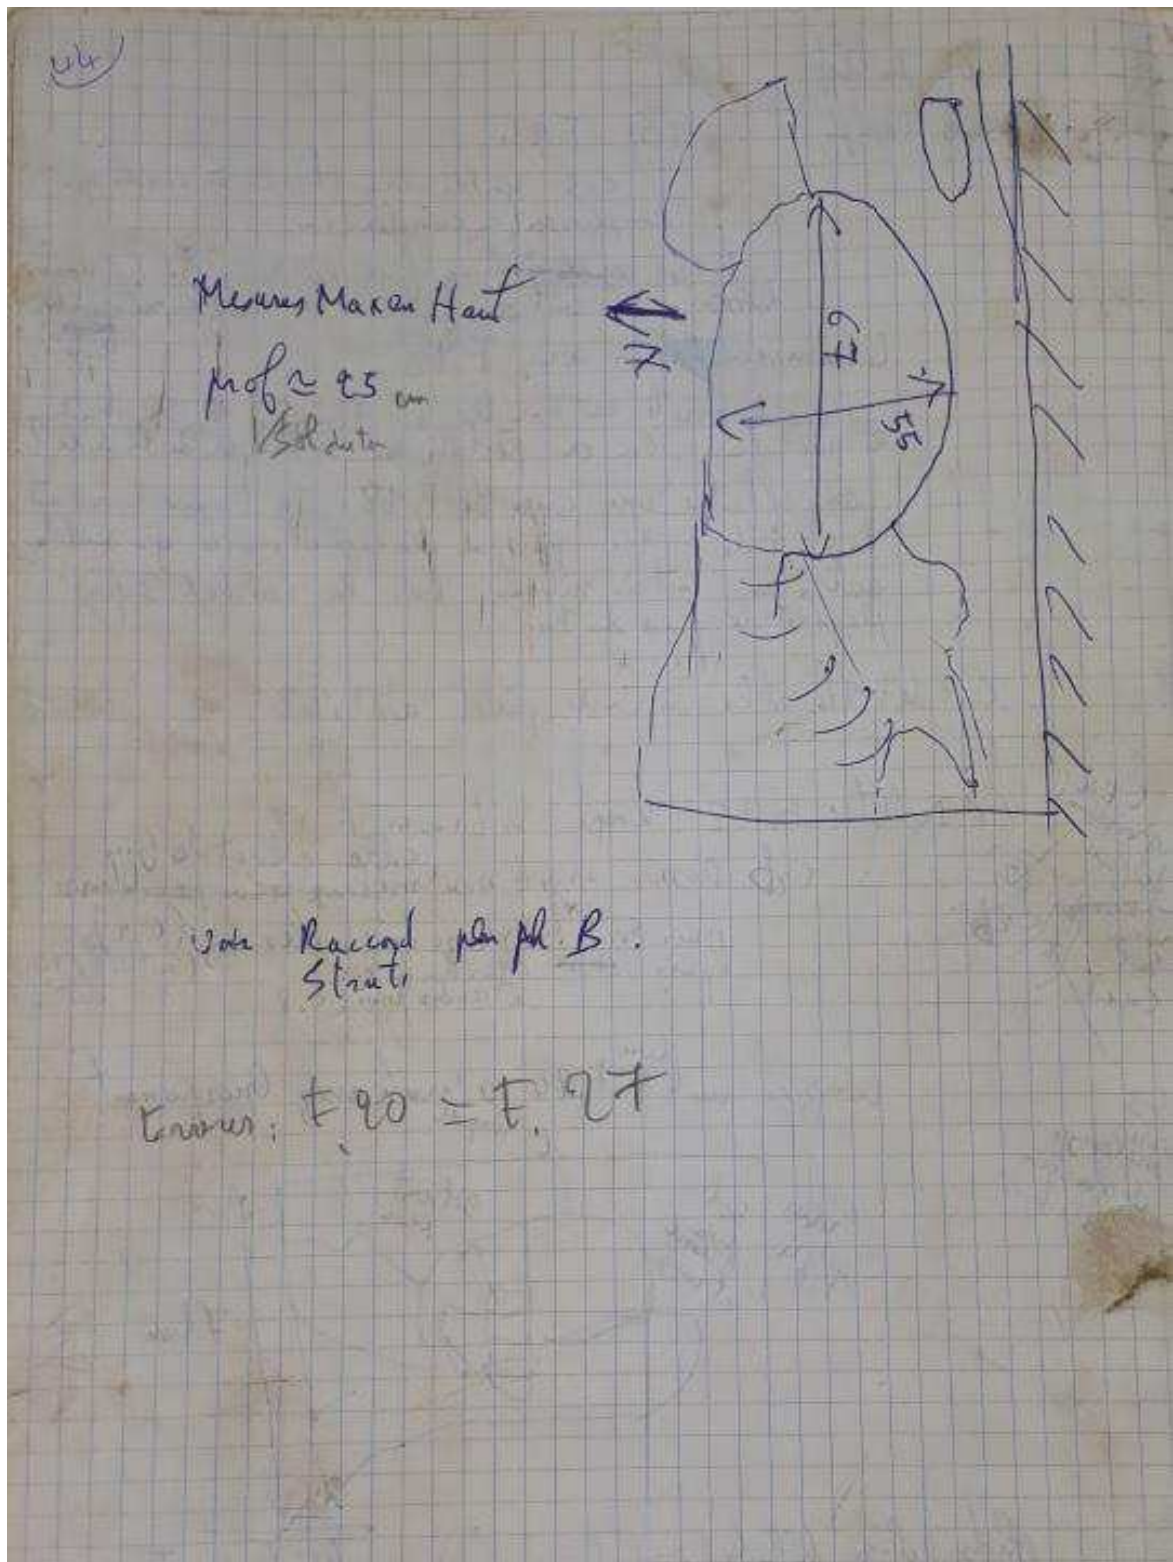 44
Mesures Max en Haut
prof ≃ 25 cm
N
67
55
Voir Raccord plan ph. B.
Strati
Erreur: F. 20 = F. 27